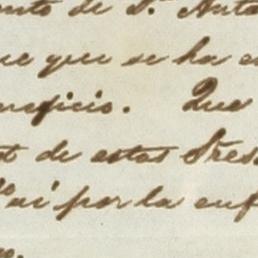 nto de S. Anto
ue que se ha e
neficio. Que
t de estas Sres
así por la enf